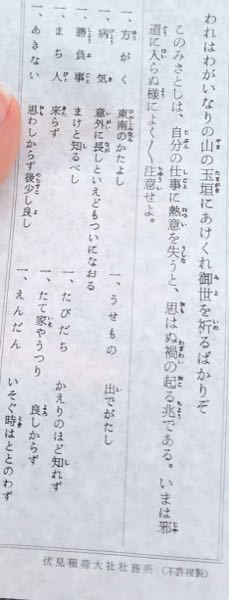 われはわがいなりの山の玉垣にあけくれ御世を祈るばかりぞ
このみさとしは、自分の仕事に熱意を失うと、思はぬ禍の起る兆である。いまは邪
道に入らぬ様によく〳〵注意せよ。
一、方がく 東南のかたよし
一、病気 意外に長しといえどもついになおる
一、勝負事 まけと知るべし
一、まち人 来らず
一、あきない 思わしからず後少し良し
一、うせもの 出でがたし
一、たびだち かえりのほど知れず
一、たて家やうつり 良しからず
一、えんだん いそぐ時はととのわず
伏見稲荷大社社務所 (不許複製)